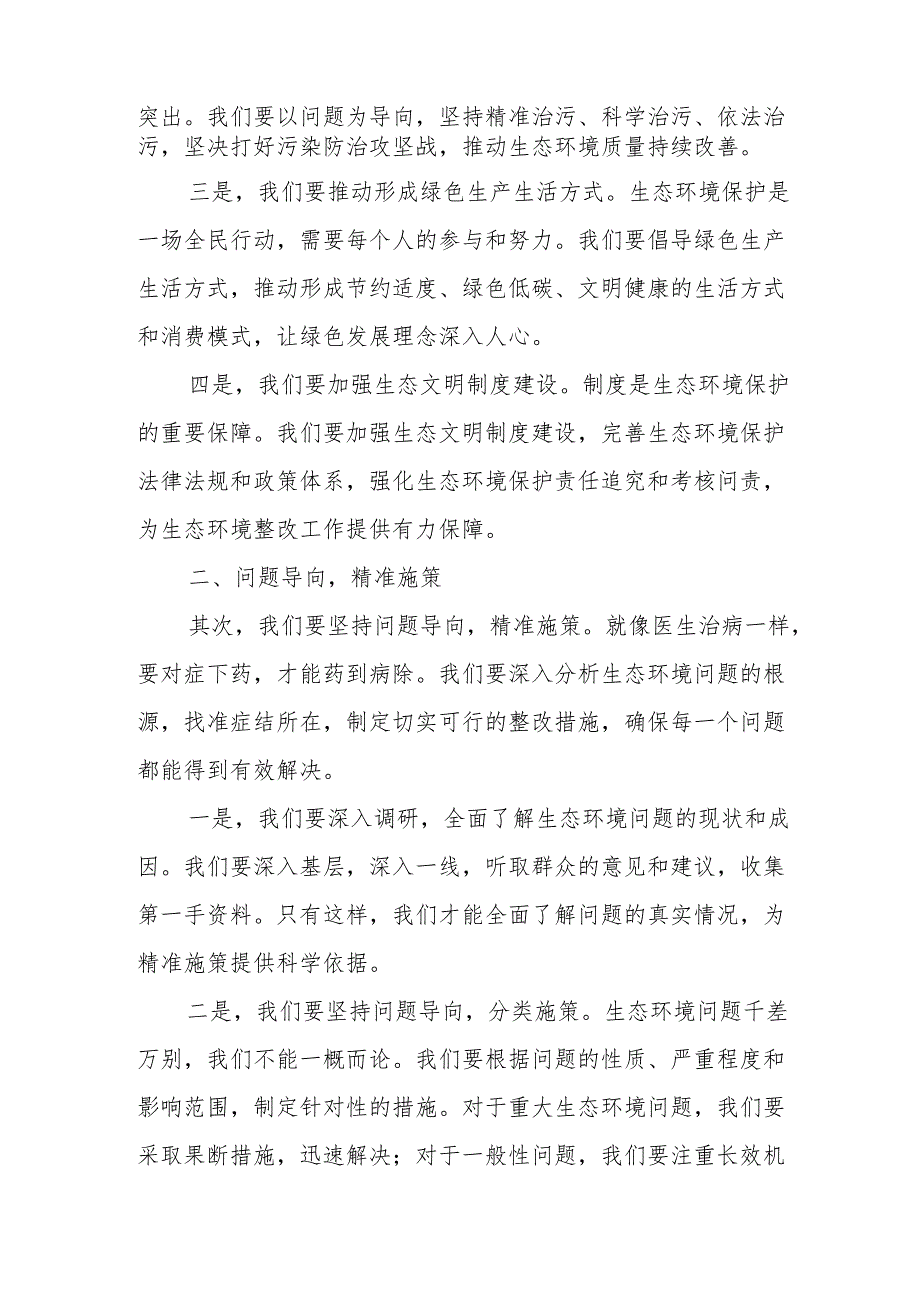 突出。我们要以问题为导向，坚持精准治污、科学治污、依法治
污，坚决打好污染防治攻坚战，推动生态环境质量持续改善。
三是，我们要推动形成绿色生产生活方式。生态环境保护是
一场全民行动，需要每个人的参与和努力。我们要倡导绿色生产
生活方式，推动形成节约适度、绿色低碳、文明健康的生活方式
和消费模式，让绿色发展理念深入人心。
四是，我们要加强生态文明制度建设。制度是生态环境保护
的重要保障。我们要加强生态文明制度建设，完善生态环境保护
法律法规和政策体系，强化生态环境保护责任追究和考核问责，
为生态环境整改工作提供有力保障。
二、问题导向，精准施策
其次，我们要坚持问题导向，精准施策。就像医生治病一样，
要对症下药，才能药到病除。我们要深入分析生态环境问题的根
源，找准症结所在，制定切实可行的整改措施，确保每一个问题
都能得到有效解决。
一是，我们要深入调研，全面了解生态环境问题的现状和成
因。我们要深入基层，深入一线，听取群众的意见和建议，收集
第一手资料。只有这样，我们才能全面了解问题的真实情况，为
精准施策提供科学依据。
二是，我们要坚持问题导向，分类施策。生态环境问题千差
万别，我们不能一概而论。我们要根据问题的性质、严重程度和
影响范围，制定针对性的措施。对于重大生态环境问题，我们要
采取果断措施，迅速解决；对于一般性问题，我们要注重长效机